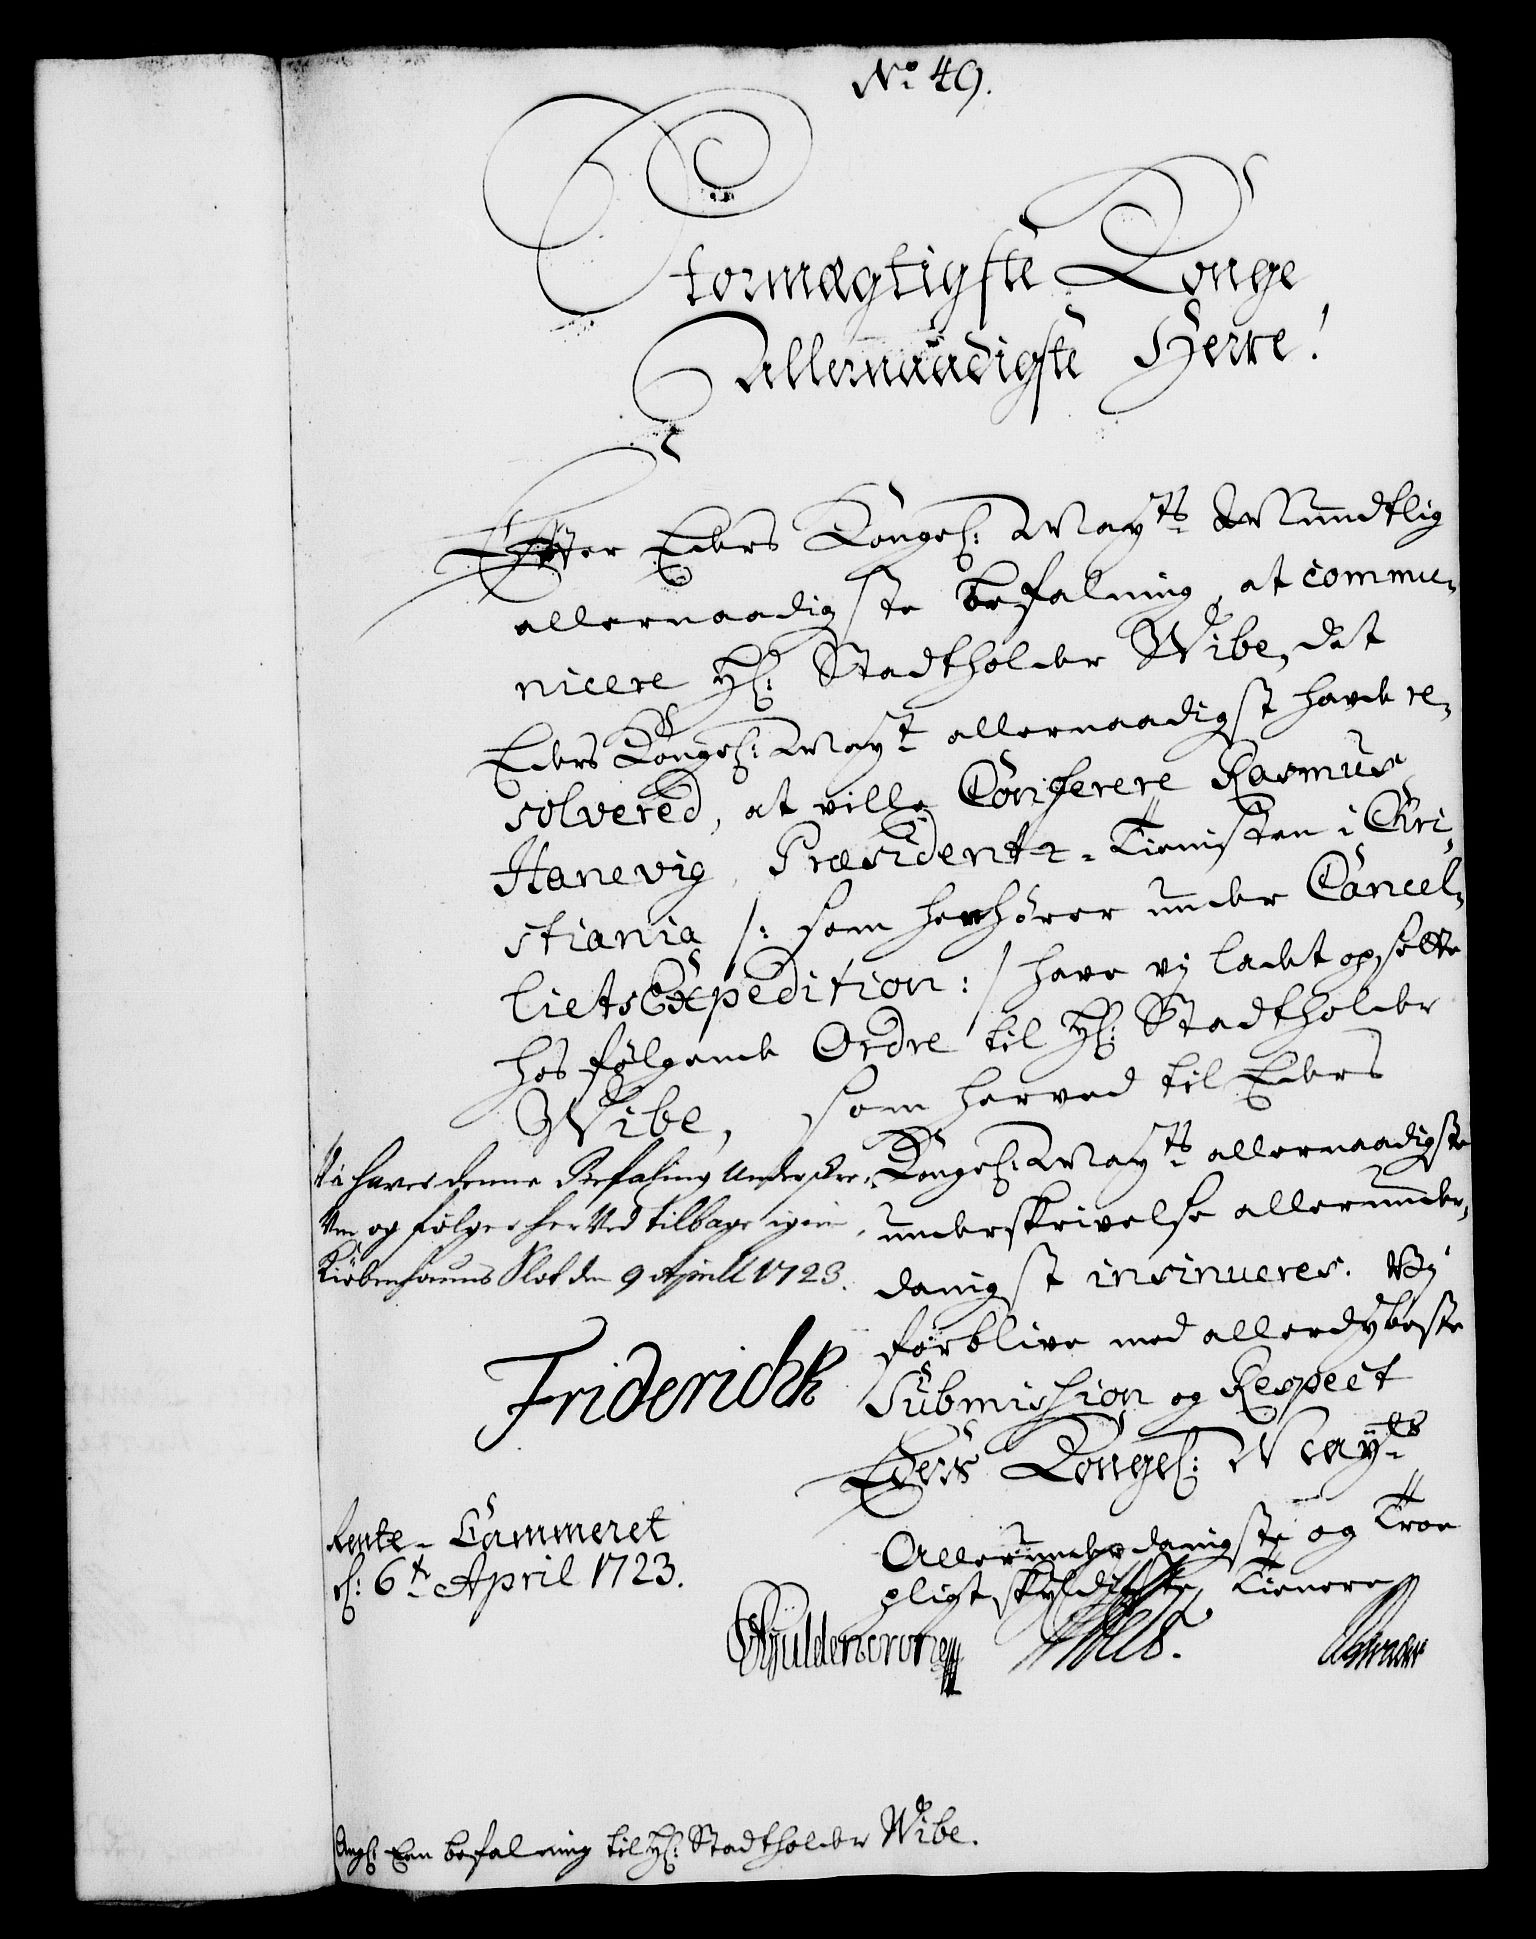 No. 49.
Stormægtigste Konge
allernaadigste Herre!
Efter Eders Kongel: May.ts Mundtlig
allernaadigste befalning, at commu-
nicere H: Stadtholder Wibe, det
Eders Kongel: May.t allernaadigst hafde re-
solvered, at ville Conferere Rasmus
Hanevig, Præsident-Tienisten i Chri-
stiania /: som henhörer under Cancel-
liets Expedition :/ have vij ladet opsette
hosfølgende Ordre til H: Stadtholder
Wibe, som herved til Eders
Kongel: May.ts allernaadigste
underskrivelse allerunder-
danigst insinueres. Vij
forblive med allerdybeste
Submission og Respect
Eders Kongel: May.ts
Allerunderdanigste og Troe
pligtskyldigste Tienere
Vi haver denne Befaling Underskre-
ven og følger her Ved tilbage igien,
Kiøbenhauns Slot den 9 Aprill 1723.
Friderich R
Rente-Cammeret
d: 6t April 1723.
Gyldencrone
Ang: Een befalning til H: Stadtholder Wibe.